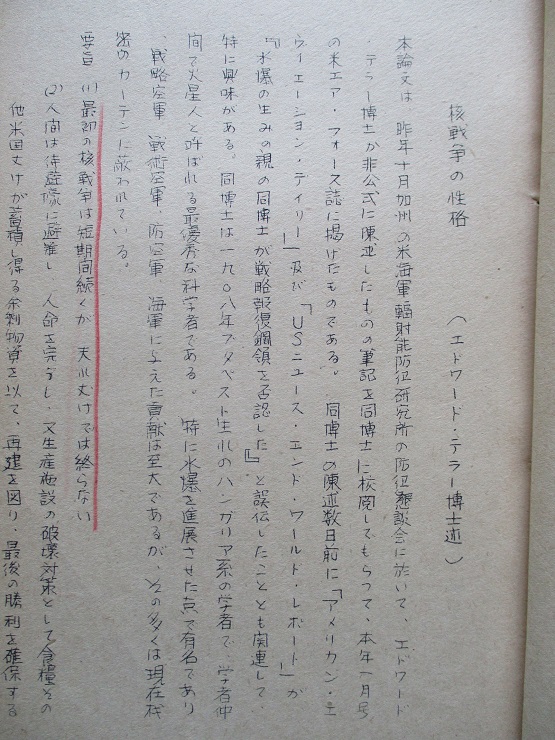 核戦争の性格　　（エドワード・テラー博士述）
本論文は、昨年十月加州の米海軍輻射能防禦研究所の防禦懇談会に於いて、エドワード
・テラー博士が非公式に陳述したものの筆記を同博士に校閲してもらって、本年一月号
の米エア・フォース誌に掲げたものである。同博士の陳述数日前に「アメリカン・エ
ヴィエーション・デイリー」及び「USニュース・エンド・ワールト・レポート」が
『水爆の生みの親の同博士が戦略報復鋼領を否認した』と誤伝したこととも関連して、
特に興味がある。同博士は一九〇八年ブタペスト生れのハンガリア系の学者で、学者仲
間で火星人と呼ばれる最優秀な科学者である。特に水爆を進展させた点で有名であり
、戦略空軍　戦術空軍、防空軍　海軍に与えた貢献は至大であるが、その多くは現在機
密のカーテンに蔽われている。
要旨　(1) 最初の核戦争は短期間続くが　夫れ丈けでは終らない
(2) 人間は待避壕に避難し　人命を完うし、又生産施設の破壊対策として食糧その
他米国丈けが蓄積し得る余剰物資を以て、再建を図り、最後の勝利を確保する